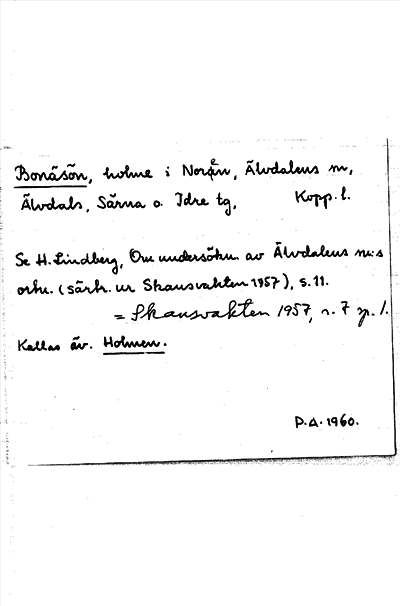 Bonäsön, holme i Norån, Älvdalens sn,
Älvdals, Särna o. Idre tg, Kopp. l.
Se H. Lindberg, Om undersökn. av Älvdalens sn:s
ortn. (särtr. ur Skansvakten 1957), s. 11.
= Skansvakten 1957, s. 7 sp. 1.
Kallas äv. Holmen.
P.A. 1960.